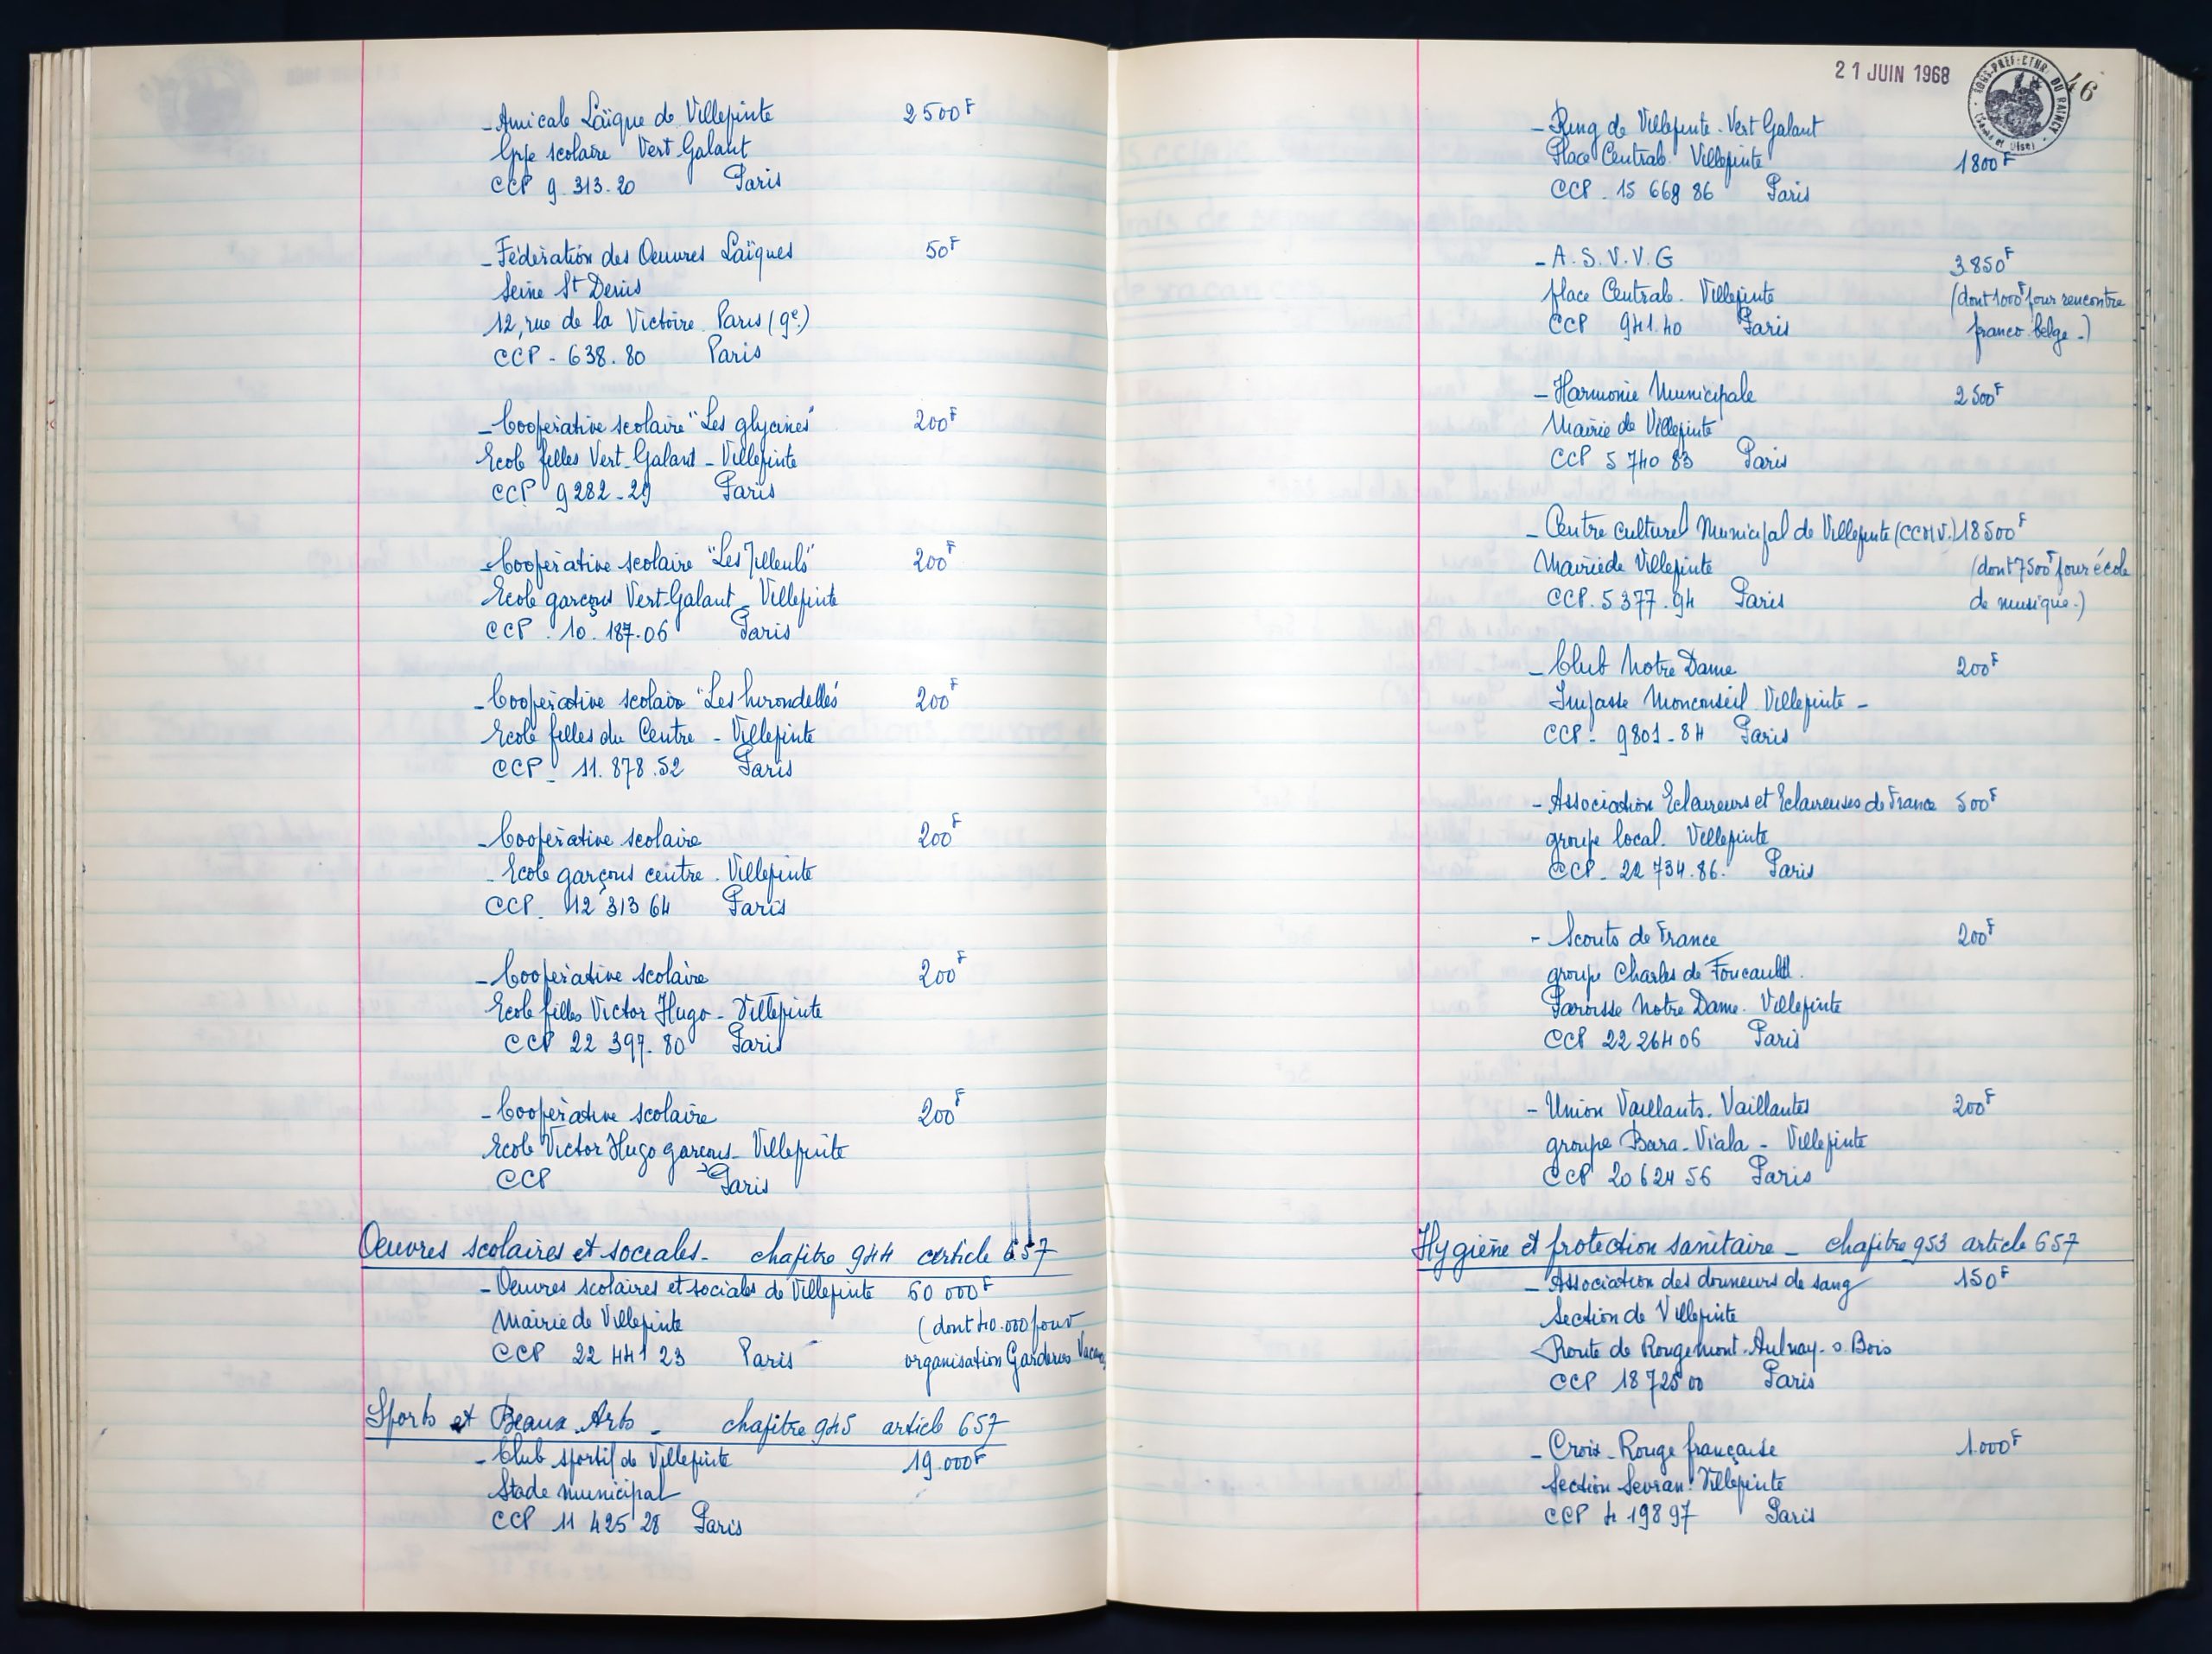 - Amicale Laïque de Villepinte 2500F
Grpe scolaire Vert-Galant
CCP 9.313.20 Paris
- Fédération des Oeuvres Laïques 50F
Seine St Denis
12, rue de la Victoire. Paris (9e.)
CCP - 638.80 Paris
- Coopérative scolaire "Les glycines" 200F
Ecole filles Vert-Galant - Villepinte
CCP 9282-29 Paris
- Coopérative scolaire "Les Tilleuls" 200F
Ecole garçons Vert-Galant - Villepinte
CCP . 10.187.06 Paris
- Coopérative scolaire "Les hirondelles" 200F
Ecole filles du Centre - Villepinte
CCP - 11.878.52 Paris
- Coopérative scolaire 200F
- Ecole garçons centre . Villepinte
CCP. 12 313 64 Paris
- Coopérative scolaire 200F
Ecole filles Victor Hugo - Villepinte
CCP 22 397.80 Paris
- Coopérative scolaire 200F
Ecole Victor Hugo garçons - Villepinte
CCP Paris
Oeuvres scolaires et sociales - chapitre 944 article 657
- Oeuvres scolaires et sociales de Villepinte 60 000F
Mairie de Villepinte (dont 40.000 pour
CCP 22 441 23 Paris organisation Garderies
Sports et Beaux Arts - chapitre 945 article 657
- Club sportif de Villepinte 19.000F
Stade municipal
CCP 11 425 28 Paris
21 JUIN 1968
SOUS-PREFECTURE DU RAINCY
(Seine et Oise)
46
- Ring de Villepinte - Vert Galant
Place Centrale. Villepinte 1800F
CCP . 15 669 86 Paris
- A.S.V.V.G 3.850F
place Centrale. Villepinte (dont 1000F pour rencontre
CCP 941.40 Paris franco-belge.)
- Harmonie Municipale 2500F
Mairie de Villepinte
CCP 5 740 83 Paris
- Centre culturel Municipal de Villepinte (CCMV.) 18500F
Mairie de Villepinte (dont 7500F pour école
CCP. 5377.94 Paris de musique.)
- Club Notre Dame 200F
Impasse Monconseil Villepinte -
CCP - 9801-84 Paris
- Association Eclaireurs et Eclaireuses de France 500F
groupe local. Villepinte
CCP - 22 734.86. Paris
- Scouts de France 200F
groupe Charles de Foucauld.
Paroisse Notre Dame. Villepinte
CCP 22 264 06 Paris
- Union Vaillants. Vaillantes 200F
groupe Bara-Viala - Villepinte
CCP 20 624 56 Paris
Hygiène et protection sanitaire - chapitre 953 article 657
- Association des donneurs de sang 150F
Section de Villepinte
Route de Rougemont. Aulnay. s. Bois
CCP 18 725 00 Paris
- Croix-Rouge française 1.000F
Section Sevran. Villepinte
CCP 4 198 97 Paris